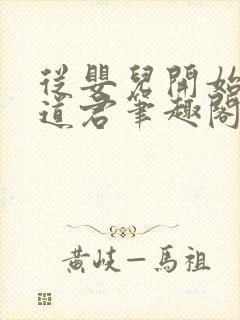 從嬰兒開始
道君筆趣閣
黃岐－馬祖